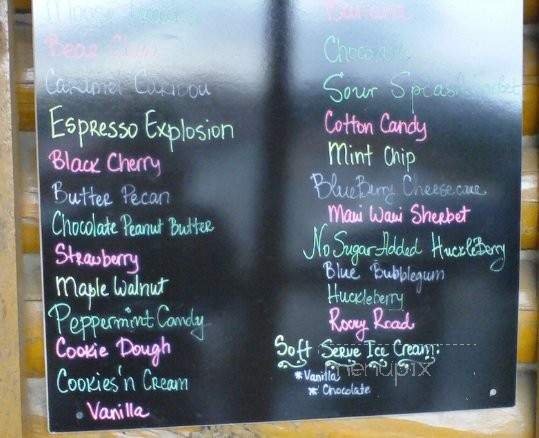 Moose Tracks
Bear Claw
Caramel Caribou
Espresso Explosion
Black Cherry
Butter Pecan
Chocolate Peanut Butter
Strawberry
Maple Walnut
Peppermint Candy
Cookie Dough
Cookies'n Cream
Vanilla
Banana
Chocolate
Sour Splash
Cotton Candy
Mint Chip
BlueBerry Cheesecake
Maui Waui Sherbet
No Sugar Added HuckleBerry
Blue Bubblegum
Huckleberry
Rocky Road
Soft Serve Ice Cream.
*Vanilla
* Chocolate
menupix